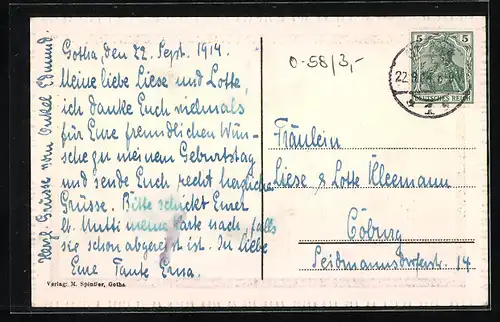 Gotha, den 22. Sept. 1914.
Meine liebe Liese und Lotte,
ich danke Euch vielmals
für Eure freundlichen Wün-
sche zu meinem Geburtstag
und sende Euch recht herzliche
Grüsse. Bitte schickt Eurer
lb. Mutti meine Karte nach, falls
sie schon abgereist ist. In Liebe
Eure Tante Erna.
Herzl. Grüsse vom Onkel Edmund.
Verlag: M. Spintler, Gotha.
0-58/3,-
5 5
DEUTSCHES REICH
22.9.14
Fräulein
Liese & Lotte Kleemann
Coburg
Seidmannsdorferstr. 14